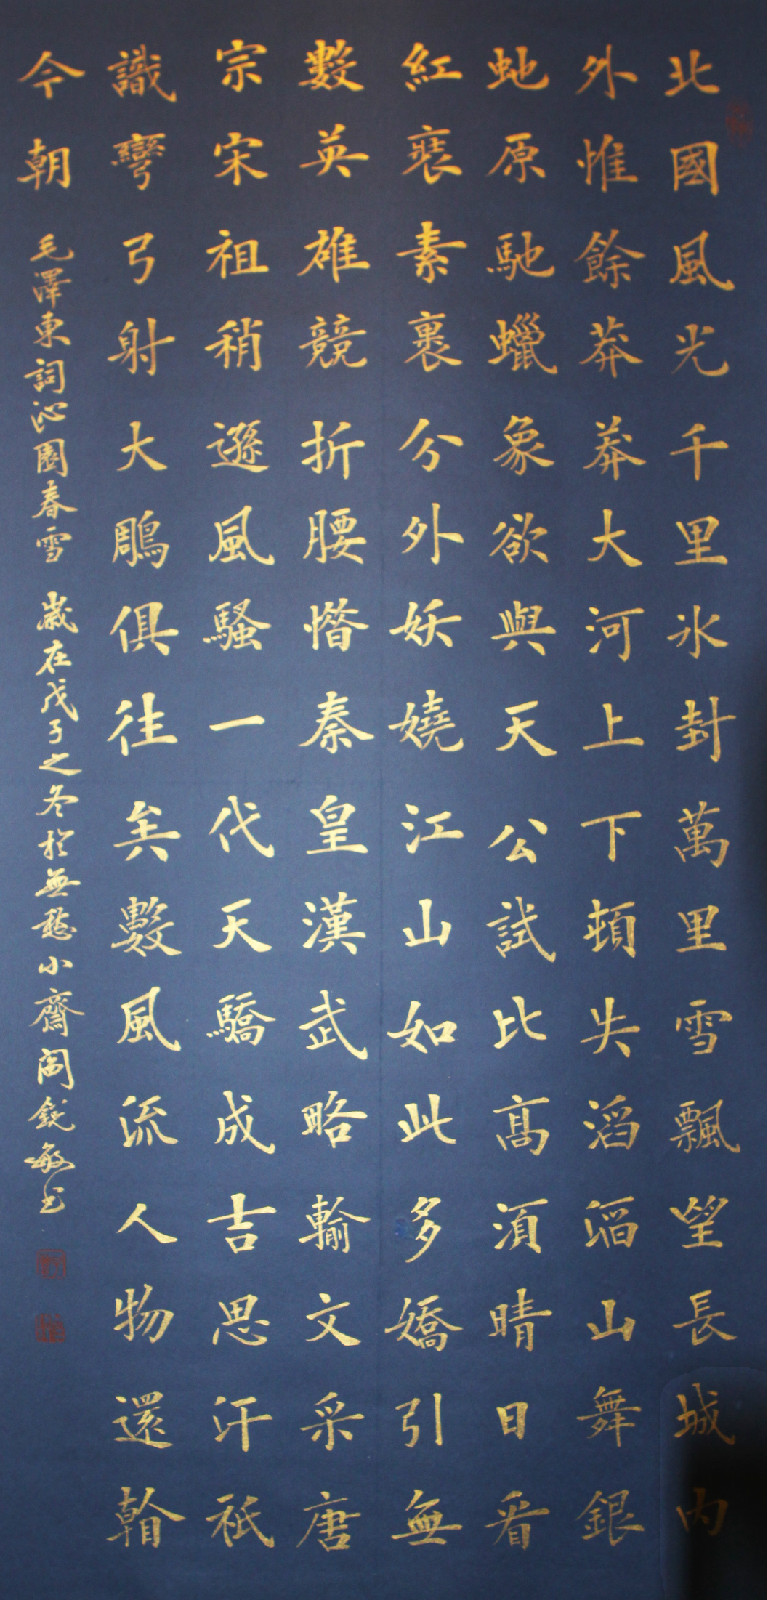 北國風光千里冰封萬里雪飄望長城內
外惟餘莽莽大河上下頓失滔滔山舞銀
虵原馳蠟象欲與天公試比高須晴日看
紅裝素裹分外妖嬈江山如此多嬌引無
數英雄競折腰惜秦皇漢武略輸文采唐
宗宋祖稍遜風騷一代天驕成吉思汗祇
識彎弓射大鵰俱往矣數風流人物還看
今朝 毛澤東詞沁園春雪 歲在戊子之冬於無愁小齋閻銳敏书